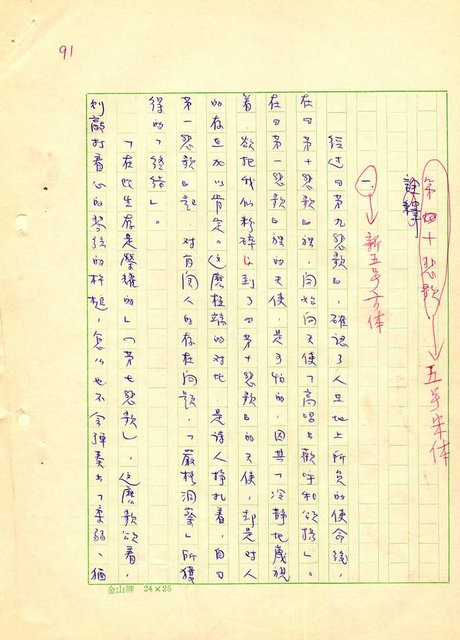 91
第四十悲歌
五号宋体
註釋
一、
新五号方体
經過『第九悲歌』，確認了人在地上所負的使命後，
在『第十悲歌』後，開始向天使「高唱出歡呼和頌揚」。
在『第一悲歌』後的天使，是可怕的，因其「冷靜地蔑視
着 欲把我們粉碎」到了『第十悲歌』的天使，却是對人
的存在加以肯定。這麼極端的對比，是詩人掙扎着，自『
第一悲歌』起 對有關人的存在問題，「嚴格洞察」所獲
得的「終結」。
「在此生存是榮耀的」（『第七悲歌』），這麼歌頌着，
剉敲打着心的琴弦的杵槌，怎么也不會彈奏出了柔弱、猶
金山牌 24×25